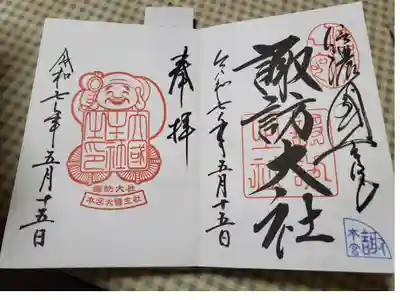 信濃國一之宮
諏訪大社
令和七年五月十五日
謝
本宮
奉拝
大國
主社
之印
諏訪大社
本宮大國主社
令和七年五月十五日